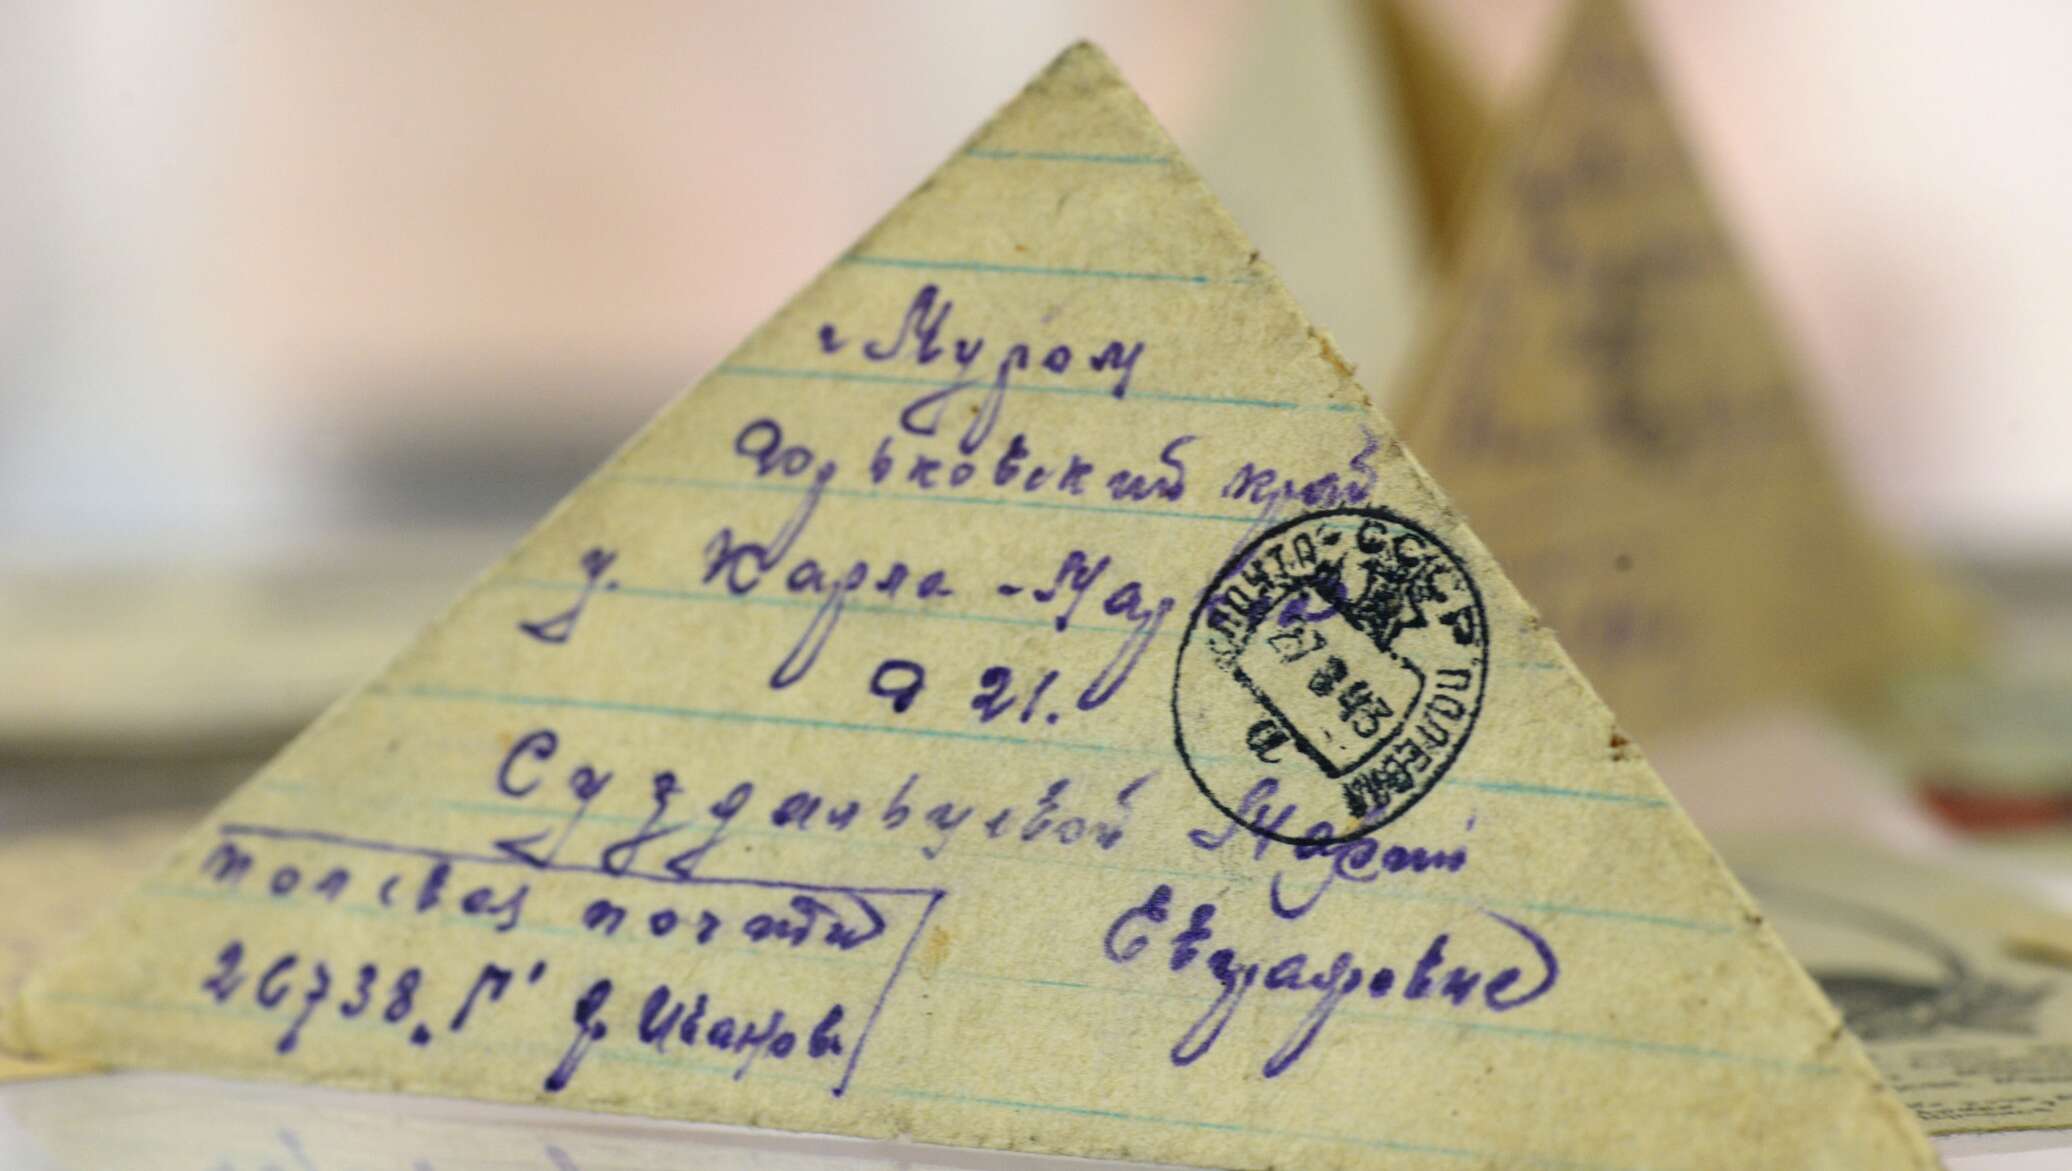 г Муром
Горьковский край
у. Карла-Маркса
д 21.
Суздальцевой Марии
Евграфовне
ПОЧТА-СССР ПОЛЕВАЯ
27 8 43
полевая почта
26738 "Г" Иванов